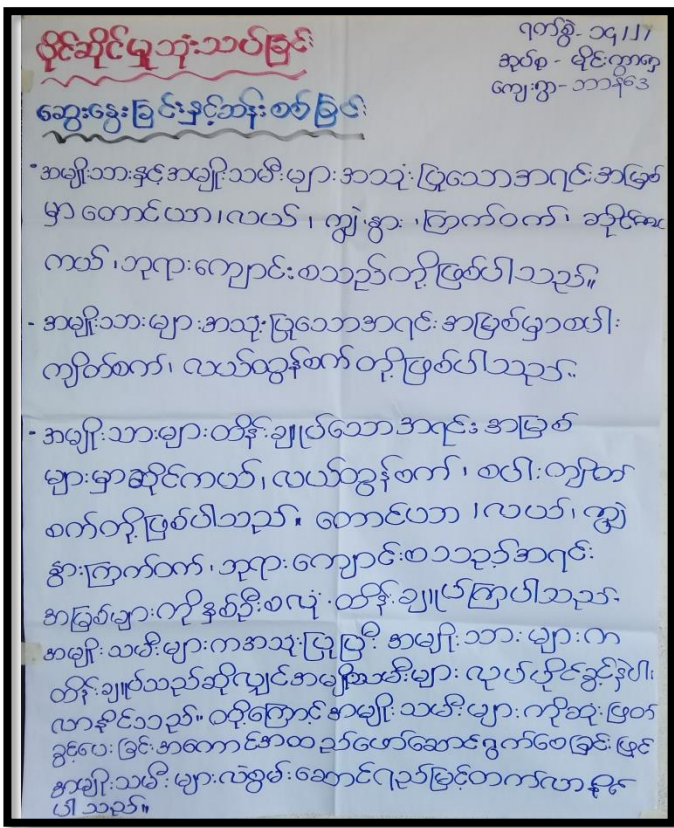 ပိုင်ဆိုင်မှုဘုံးသပ်ခြင်း
ရက်စွဲ-
အုပ်စု - မိုင်းကွာရှေ
ကျေးရွာ-ဘာနံဒေ
ဆွေးနွေးခြင်းနှင့်ဘန်းစစ်ခြင်း
အမျိုးသားနှင့်အမျိုးသမီးများအသုံးပြုသောအရင်းအမြစ်
မှာတောင်ယာ၊လယ်၊ ကျွဲ၊နွား၊ကြက်ဝက်၊
ကယ်၊ဘုရားကျောင်းစသည်တို့ဖြစ်ပါသည်။
- အမျိုးသားများအသုံးပြုသောအရင်းအမြစ်မှာစပါး
ကျိတ်စက်၊ လယ်ထွန်စက်တို့ဖြစ်ပါသည်။
- အမျိုးသားများထိန်းချုပ်သောအရင်းအမြစ်
များမှာဆိုင်ကယ်၊လယ်ထွန်စက်၊ စပါးကျိတ်
စက်တို့ဖြစ်ပါသည်။ တောင်ယာ၊လယ်၊ကျွဲ
နွား၊ကြက်ဝက်၊ဘုရားကျောင်းစသည့်အရင်း
အမြစ်များကိုနှစ်ဦးစလုံးထိန်းချုပ်ကြပါသည်။
အမျိုးသမီးများကအသုံးပြုပြီး အမျိုးသားများက
ထိန်းချုပ်သည်ဆိုလျှင်အမျိုးသမီးများ လုပ်ပိုင်ခွင့်နဲပါး
လာနိုင်သည်။ ထို့ကြောင့်အမျိုးသမီးများကိုဆုံးဖြတ်
ခွင့်ပေးခြင်းအကောင်အထည်ဖော်ဆောင်ရွက်စေခြင်းဖြင့်
အမျိုးသမီးများလဲစွမ်းဆောင်ရည်မြင့်တက်လာနိုင်
ပါသည်။